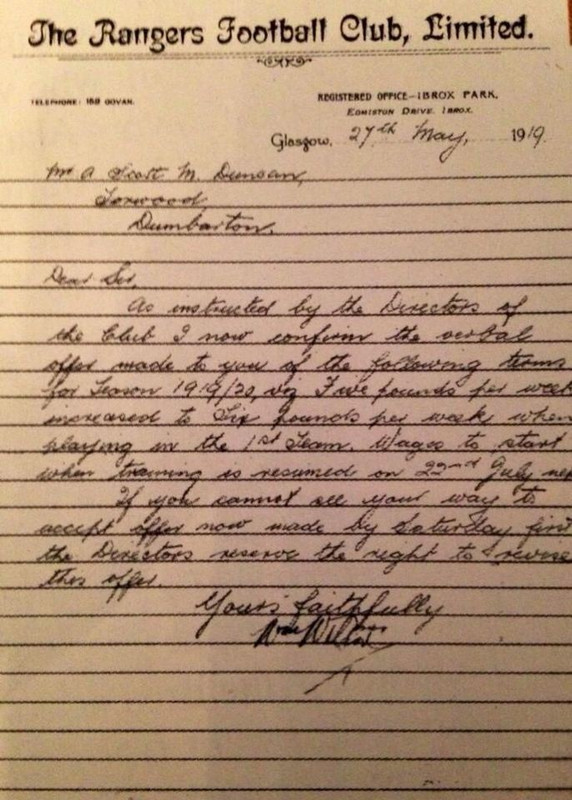 The Rangers Football Club, Limited.
TELEPHONE: 158 GOVAN.
REGISTERED OFFICE—IBROX PARK,
EDMISTON DRIVE, IBROX.
Glasgow, 27th May, 1919.
Mr A Scott M. Duncan,
Dumbarton.
Dear Sir,
As instructed by the Directors of
the Club I now confirm the verbal
offer made to you of the following terms
for Season 1919/20, viz Five pounds per week
increased to Six pounds per week when
playing in the 1st Team. Wages to start
when training is resumed on 22nd July
If you cannot see your way to
accept offer now made by Saturday first
the Directors reserve the right to revise
this offer.
Yours faithfully
Wm Wilton